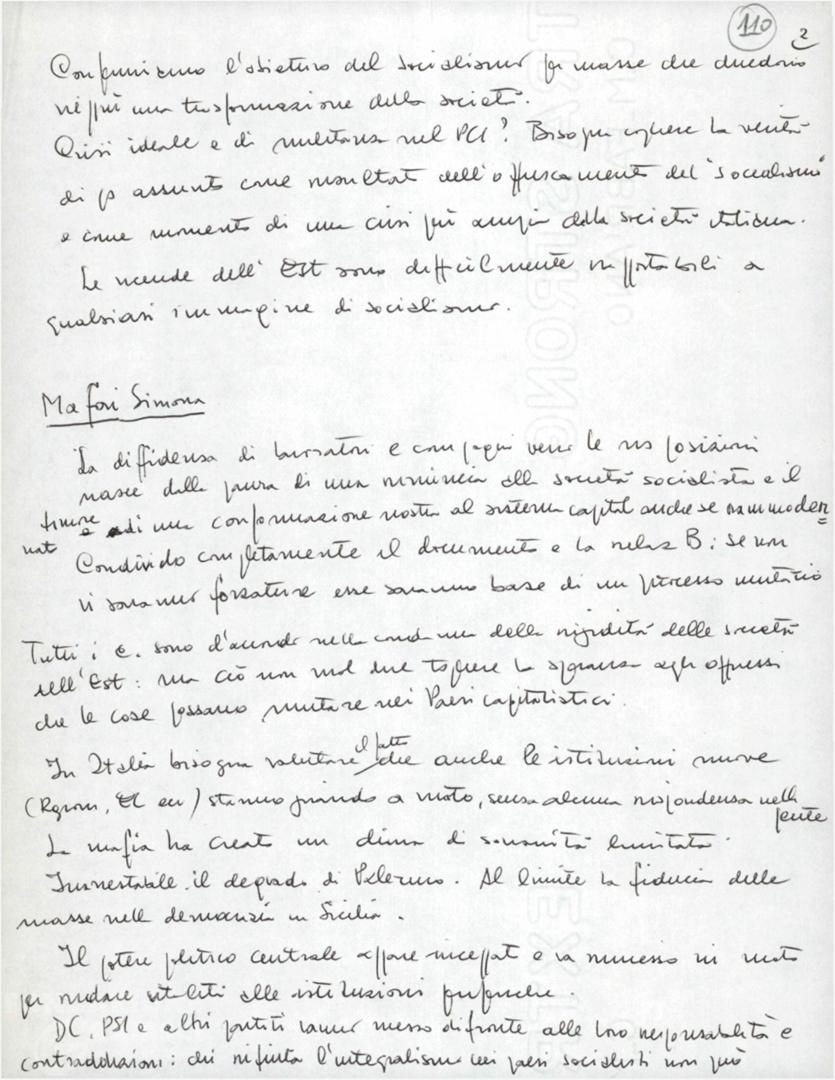 110 2
Confermiamo l'obiettivo del socialismo per masse che chiedono
né più una trasformazione della società.
Crisi ideale e di militanza nel PCI? Bisogna cogliere la verità
di assunto come risultato dell'offuscamento del "socialismo"
e come momento di una crisi più ampia della società italiana.
Le vicende dell'Est sono difficilmente rapportabili a
qualsiasi immagine di socialismo.
Mafai Simona
La diffidenza di lavoratori e compagni verso le ns posizioni
nasce dalla paura di una rinuncia alla società socialista e il
timore di una conformazione nostra al sistema capital anche se rammoder
nato
Condivido completamente il documento e la relaz B: se non
vi saranno forzature esse saranno base di un processo unitario
Tutti i c. sono d'accordo nella condanna della rigidità delle società
dell'Est: ma ciò non vuol dire togliere la speranza agli oppressi
che le cose possano mutare nei Paesi capitalistici.
In Italia bisogna valutare il fatto che anche le istituzioni nuove
(Regioni, ecc) stanno girando a vuoto, senza alcuna rispondenza nella
gente
La mafia ha creato un clima di sovranità limitata.
Inarrestabile il degrado di Palermo. Al limite la fiducia delle
masse nella democrazia in Sicilia.
Il potere politico centrale appare inceppato e va rimesso in moto
per ridare vitalità alle istituzioni periferiche.
DC, PSI e altri partiti vanno messi di fronte alle loro responsabilità e
contraddizioni: chi rifiuta l'integralismo nei paesi socialisti non può